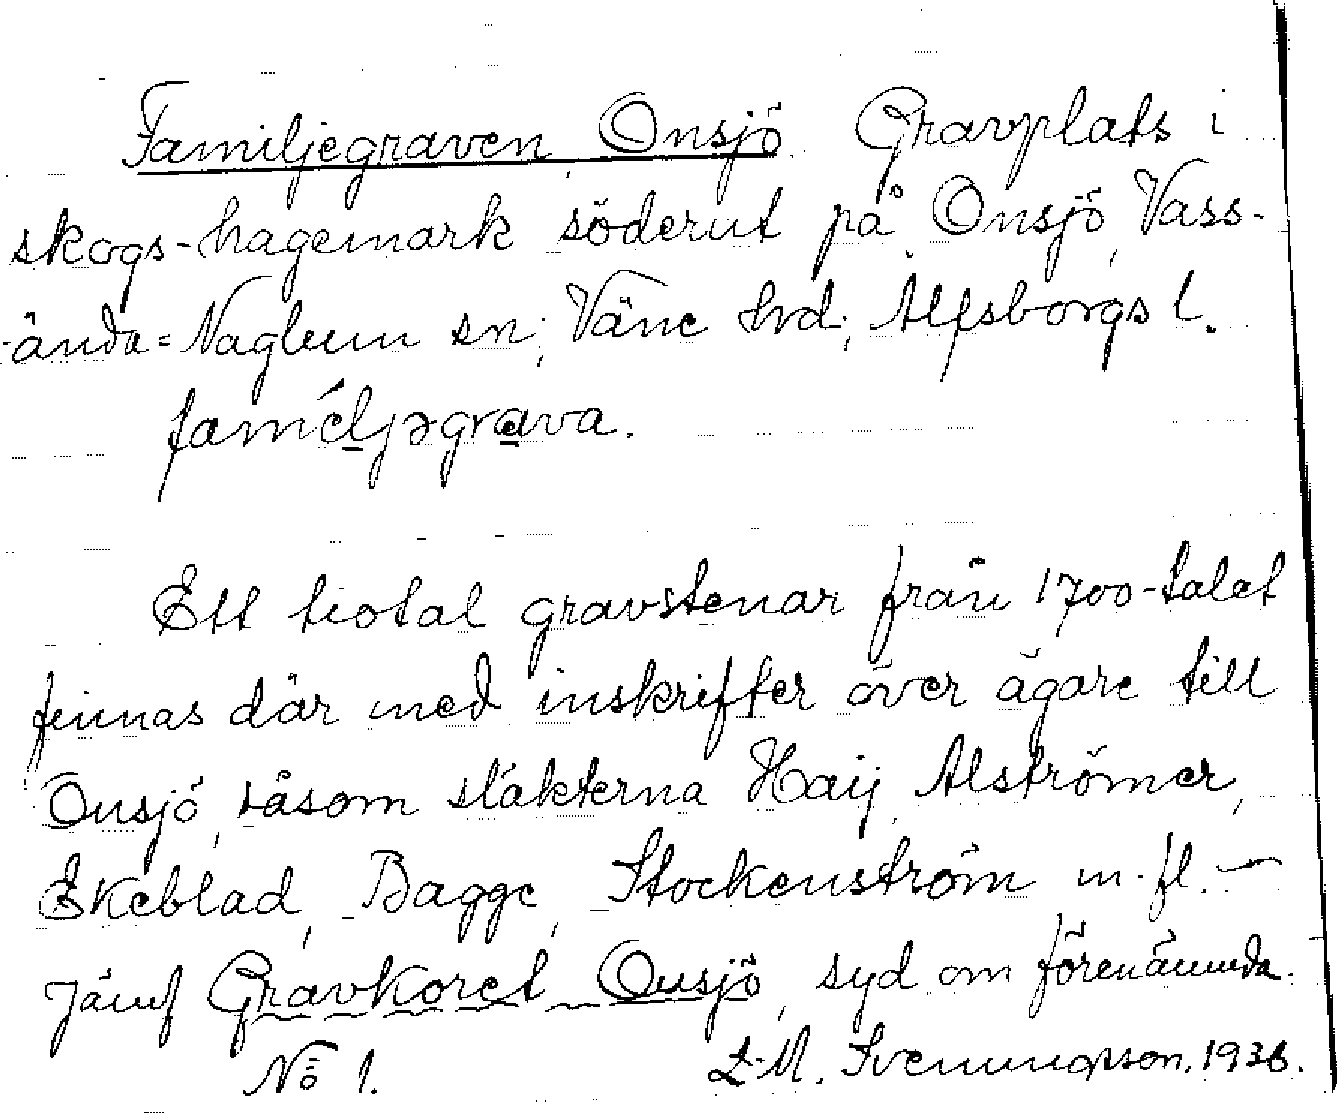 Familjegraven, Onsjö Gravplats i
skogs-hagemark söderut på Onsjö, Vass-
ända-Naglum sn; Väne hrd; Älfsborgs l.
faméljəgrava.
Ett tiotal gravstenar från 1700-talet
finnas där med inskrifter över ägare till
Onsjö, såsom släkterna Haij, Alströmer,
Ekeblad, Bagge, Stockenström m. fl. —
Jämf Gravkoret Onsjö, syd om förenämnda.
No 1. L. M. Svenungsson. 1936.